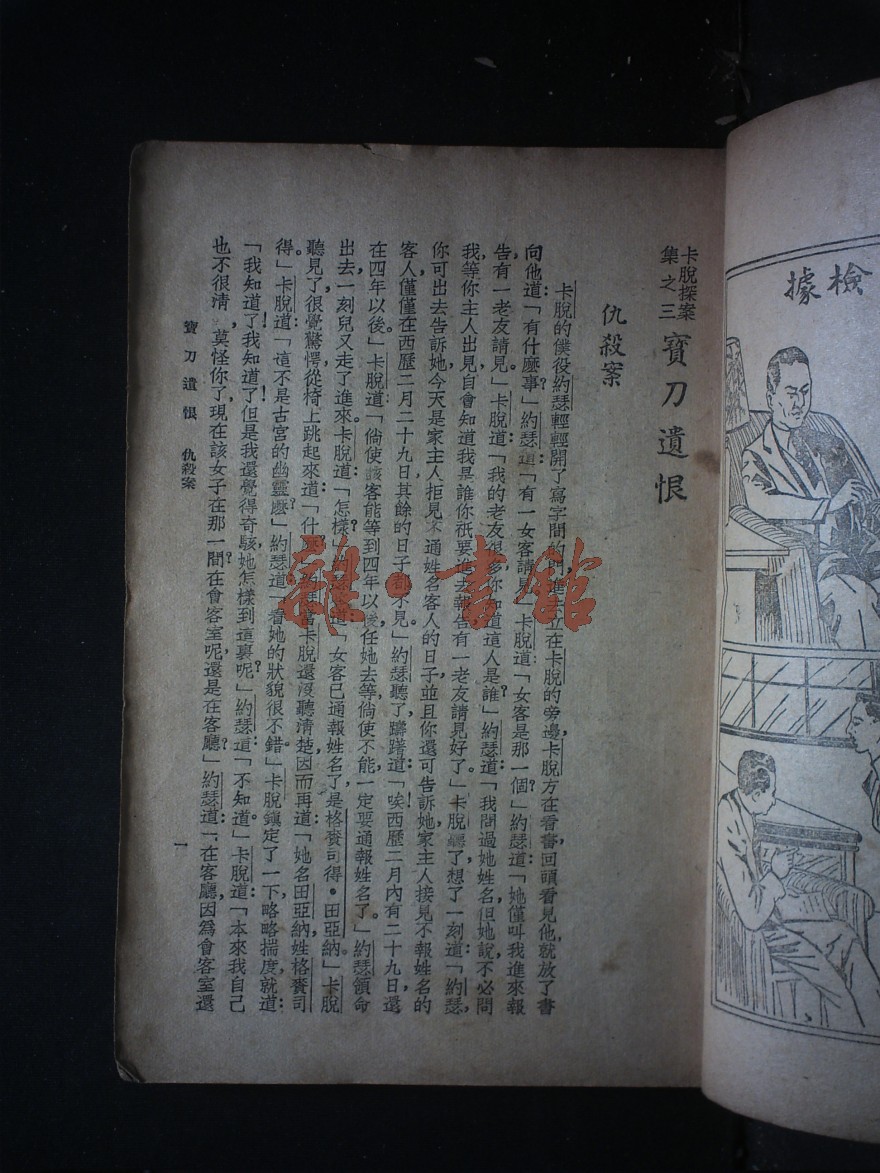 據檢
卡脫探案
集之三
寶刀遺恨
仇殺案
卡脫的僕役約瑟輕輕開了寫字間的門進去立在卡脫的旁邊卡脫方在看書回頭看見他就放了書
向他道:「有什麼事?」約瑟道:「有一女客請見」卡脫道:「女客是那一個?」約瑟道:「她僅叫我進來報
告有一老友請見」卡脫道:「我的老友很多你知道這人是誰?」約瑟道:「我問過她姓名但她說不必問
我,等你主人出見自會知道我是誰你祇要進去報告有一老友請見好了。」卡脫聽了想了一刻道:「約瑟,
你可出去告訴她今天是家主人拒見不通姓名客人的日子並且你還可告訴她家主人接見不報姓名的
客人僅僅在西歷二月二十九日其餘的日子都不見。」約瑟聽了躊躇道:「唉!西歷二月內有二十九日還
在四年以後。」卡脫道:「倘使該客能等到四年以後任她去等倘使不能一定要通報姓名了。」約瑟領命
出去一刻兒又走了進來卡脫道:「怎樣?」約瑟道:「女客已通報姓名了是格賚司得·田亞納」卡脫
聽見了很覺驚愕從椅上跳起來道:「什麼」約瑟當卡脫還沒聽清楚因而再道:「她名田亞納姓格賚司
得。」卡脫道:「這不是古宮的幽靈麼?」約瑟道:「看她的狀貌很不錯。」卡脫鎮定了一下略略揣度就道:
「我知道了!我知道了!但是我還覺得奇駭她怎樣到這裏呢?」約瑟道:「不知道。」卡脫道:「本來我自己
也不很清,莫怪你了現在該女子在那一間在會客室呢還是在客廳?」約瑟道:「在客廳,因為會客室還
寶刀遺恨 仇殺案
一
龍·書館